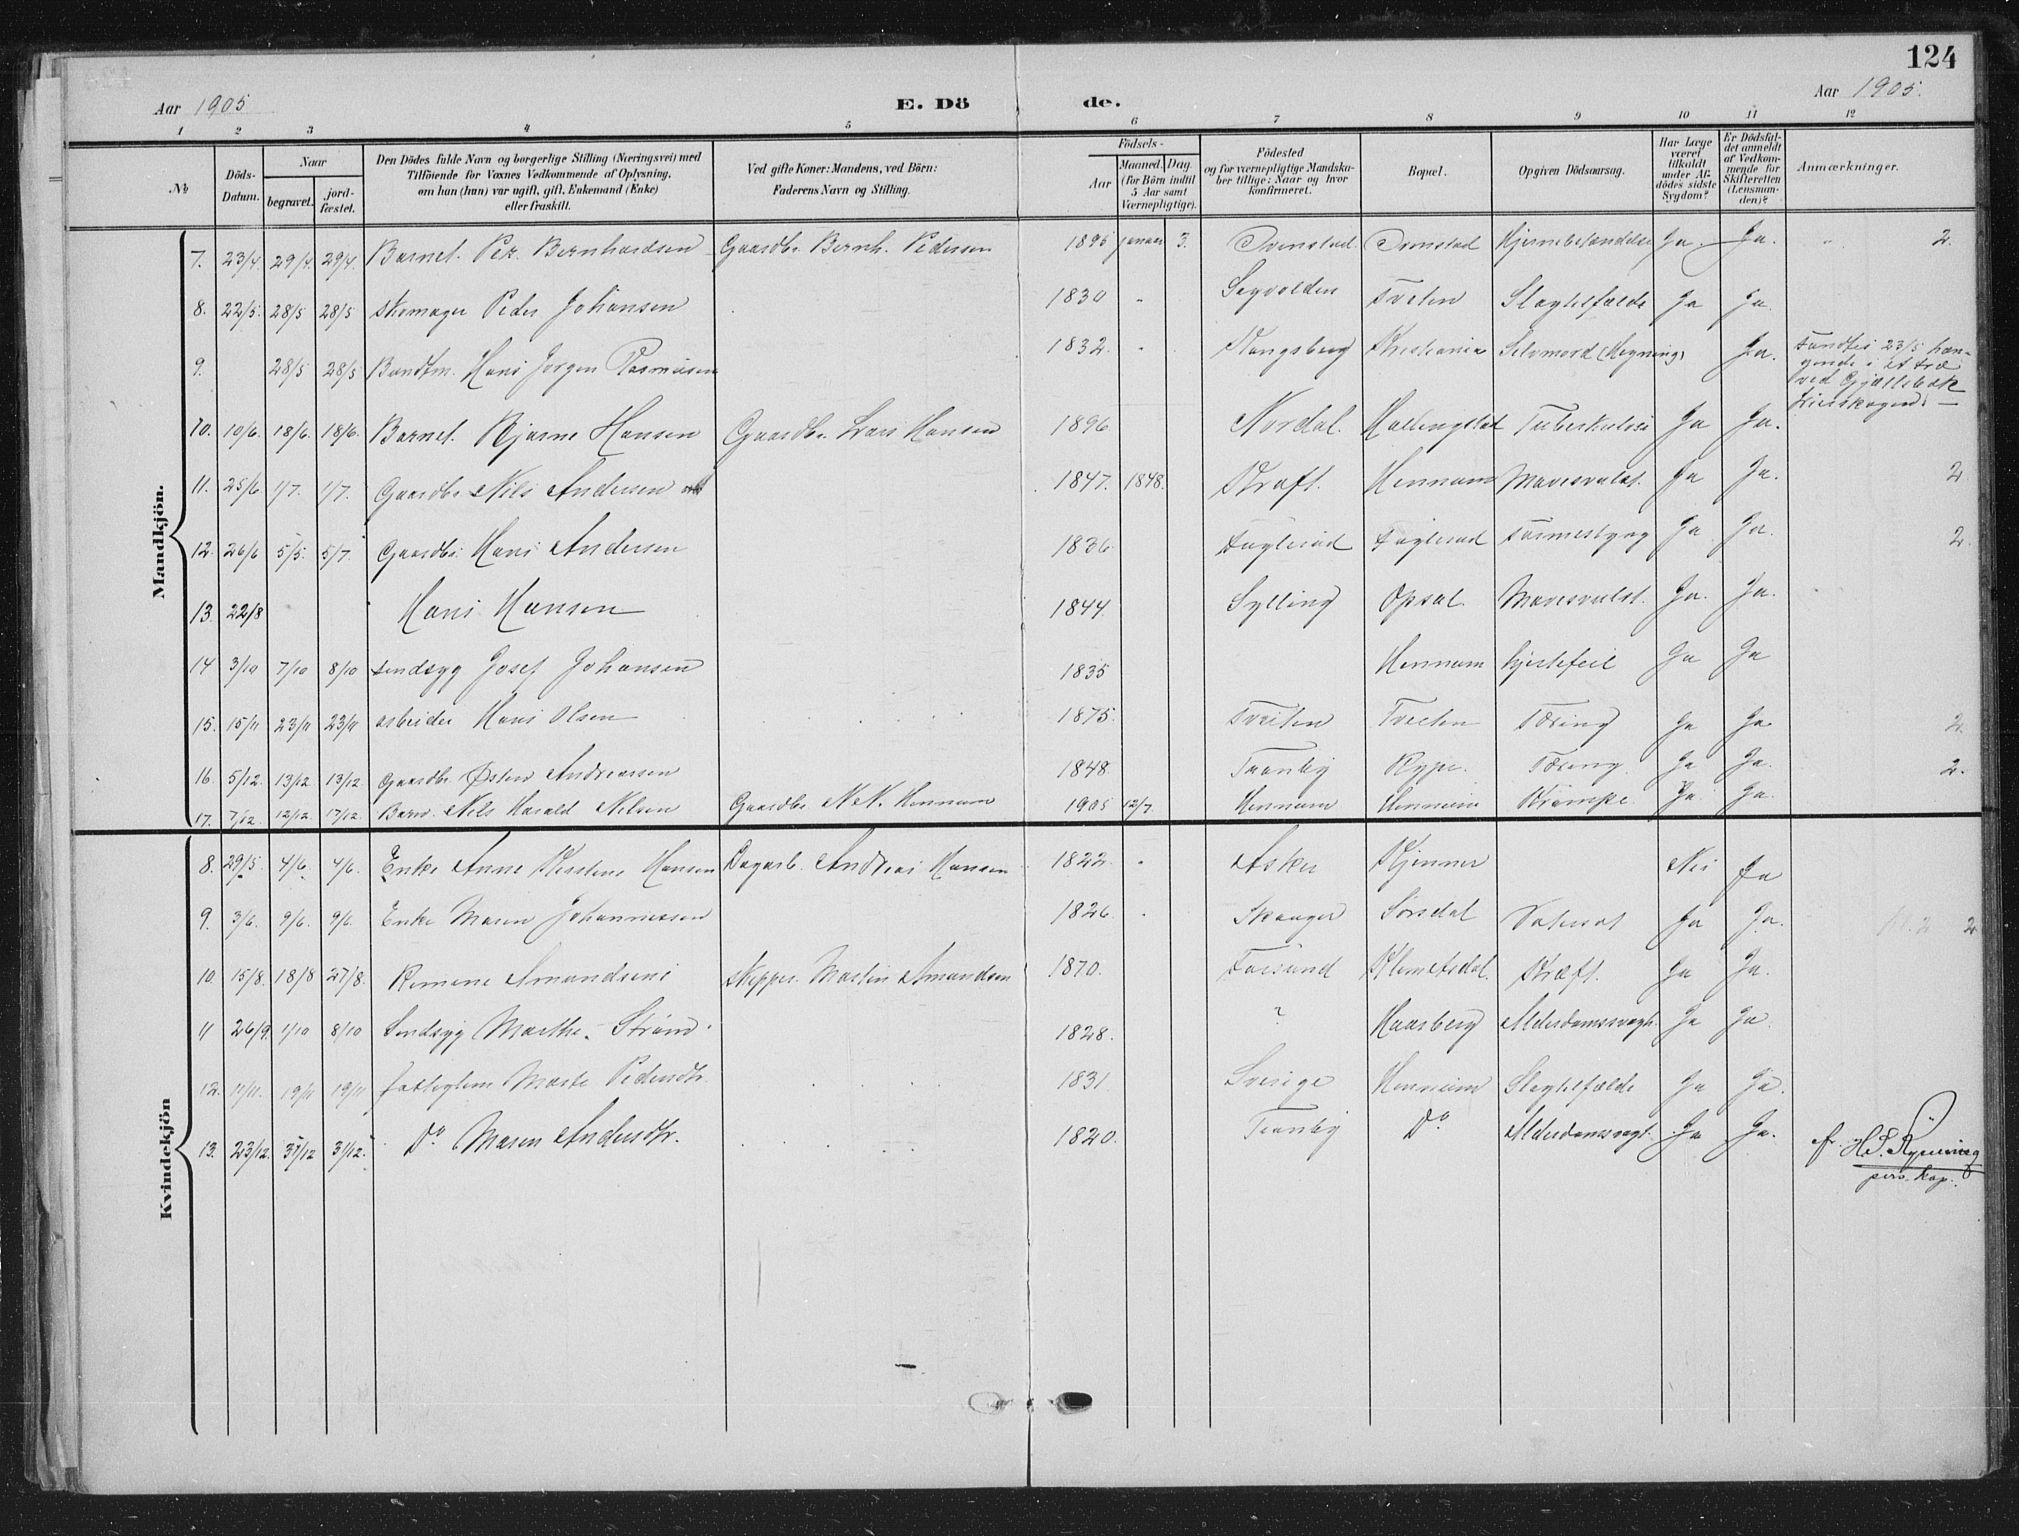 124
Aar 1905 E. Dö de. Aar 1905.
1 2 3 4 5 6 7 8 9 10 11 12
No
Döds-Datum.
Naar
begravet.
jord-fæstet.
Den Dödes fulde Navn og borgerlige Stilling (Næringsvei) med
Tilföiende for Voxnes Vedkommende af Oplysning,
om han (hun) var ugift, gift, Enkemand (Enke)
eller fraskilt.
Ved gifte Koner: Mandens, ved Börn:
Faderens Navn og Stilling.
Födsels-
Aar
Maaned. Dag.
(for Börn indtil
5 Aar samt
Værnepligtige).
Födested
og for værnepligtige Mandska-
ber tillige: Naar og hvor
konfirmeret.
Bopæl.
Opgiven Dödsaarsag.
Har Læge
været
tilkaldt
under Af-
dödes sidste
Sygdom?
Er Dödsfal-
det anmeldt
af Vedkom-
mende for
Skifteretten
(Lensman-
den)?
Anmærkninger.
Mandkjön.
7. 23/4 29/4 29/4 Barnet. Per Bernhardsen Gaardbr. Bernh. Pedersen 1895 januar 3. Ja. Ja. 2.
8. 22/5 28/5 28/5 Skomager Peder Johansen 1830 Tveten Slagtilfælde Ja Ja.
9. 28/5 28/5 Bundtm. Hans Jørgen Rasmusen 1832. Kongsberg Kristiania Selvmord (Hægning) Ja. Fandtes 23/5 hæn-
gende i et træ
ved Gjellebæk
10. 10/6. 18/6. 18/6. Barnet. Bjarne Hansen Gaardbr. Lars Hansen 1896 Nordal. Hallingstad Tuberkulose Ja Ja.
11. 25/6 1/7. 1/7. Gaardbr. Nils Andersen 1847. 1848. Kraft. Hennum Mavesvulst. Ja Ja. 2
12. 26/6 5/5. 5/7. Gaardbr. Hans Andersen 1836. Fuglerud Fuglerud Ja Ja. 2.
13. 22/8 Hans Hansen 1844. Sylling Opsal. Mavesvulst. Ja. Ja.
14 3/10 7/10 8/10 Sindsyg Josef Johansen 1835 Hennum hjertefeil Ja Ja
15. 15/11 23/11 23/11 arbeider Hans Olsen 1875. Tveiten Tveiten Tæring Ja Ja 2.
16. 5/12. 13/12 13/12 Gaardbr. Østen Andreassen 1848. Tranby Rype. Tæring. Ja Ja. 2.
17. 7/12. 12/12. 17/12. Barn. Nils Harald Nilsen Gaardbr. N.N. Hennum 1905 12/7. Hennum Hennum Krampe. Ja Ja.
Kvindekjön
8. 29/5. 4/6. 4/6. Enke Anne Kirstine Hansen Dagarb. Andreas Hansen 1822. Asker Kjenner Nei Ja
9. 3/6. 9/6. 9/6. Enke Maren Johannessen 1826. Skauger Sørsdal Vatersot Ja Ja. 2
10. 15/8. 18/8 27/8. Amandseni Skipper. Martin Amundsen 1870. Farsund Klemetsdal. Kræft. Ja Ja.
11 26/9. 1/10 8/10 Sindsyg Marthe Strøm. 1828. ? Haasberg Alderdomssvagh. Ja Ja.
12. 11/11. 19/11 19/11 fattiglem Marte Pedersdtr. 1831. Sverige Hennum Slagtilfælde Ja Ja.
13. 23/12. 31/12 31/12. Do Maren Andersdtr. 1820. Tranby Do Alderdomssvagt. Ja Ja.
pers. kap.